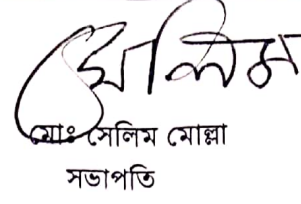 সেলিম
মোঃ সেলিম মোল্লা
সভাপতি